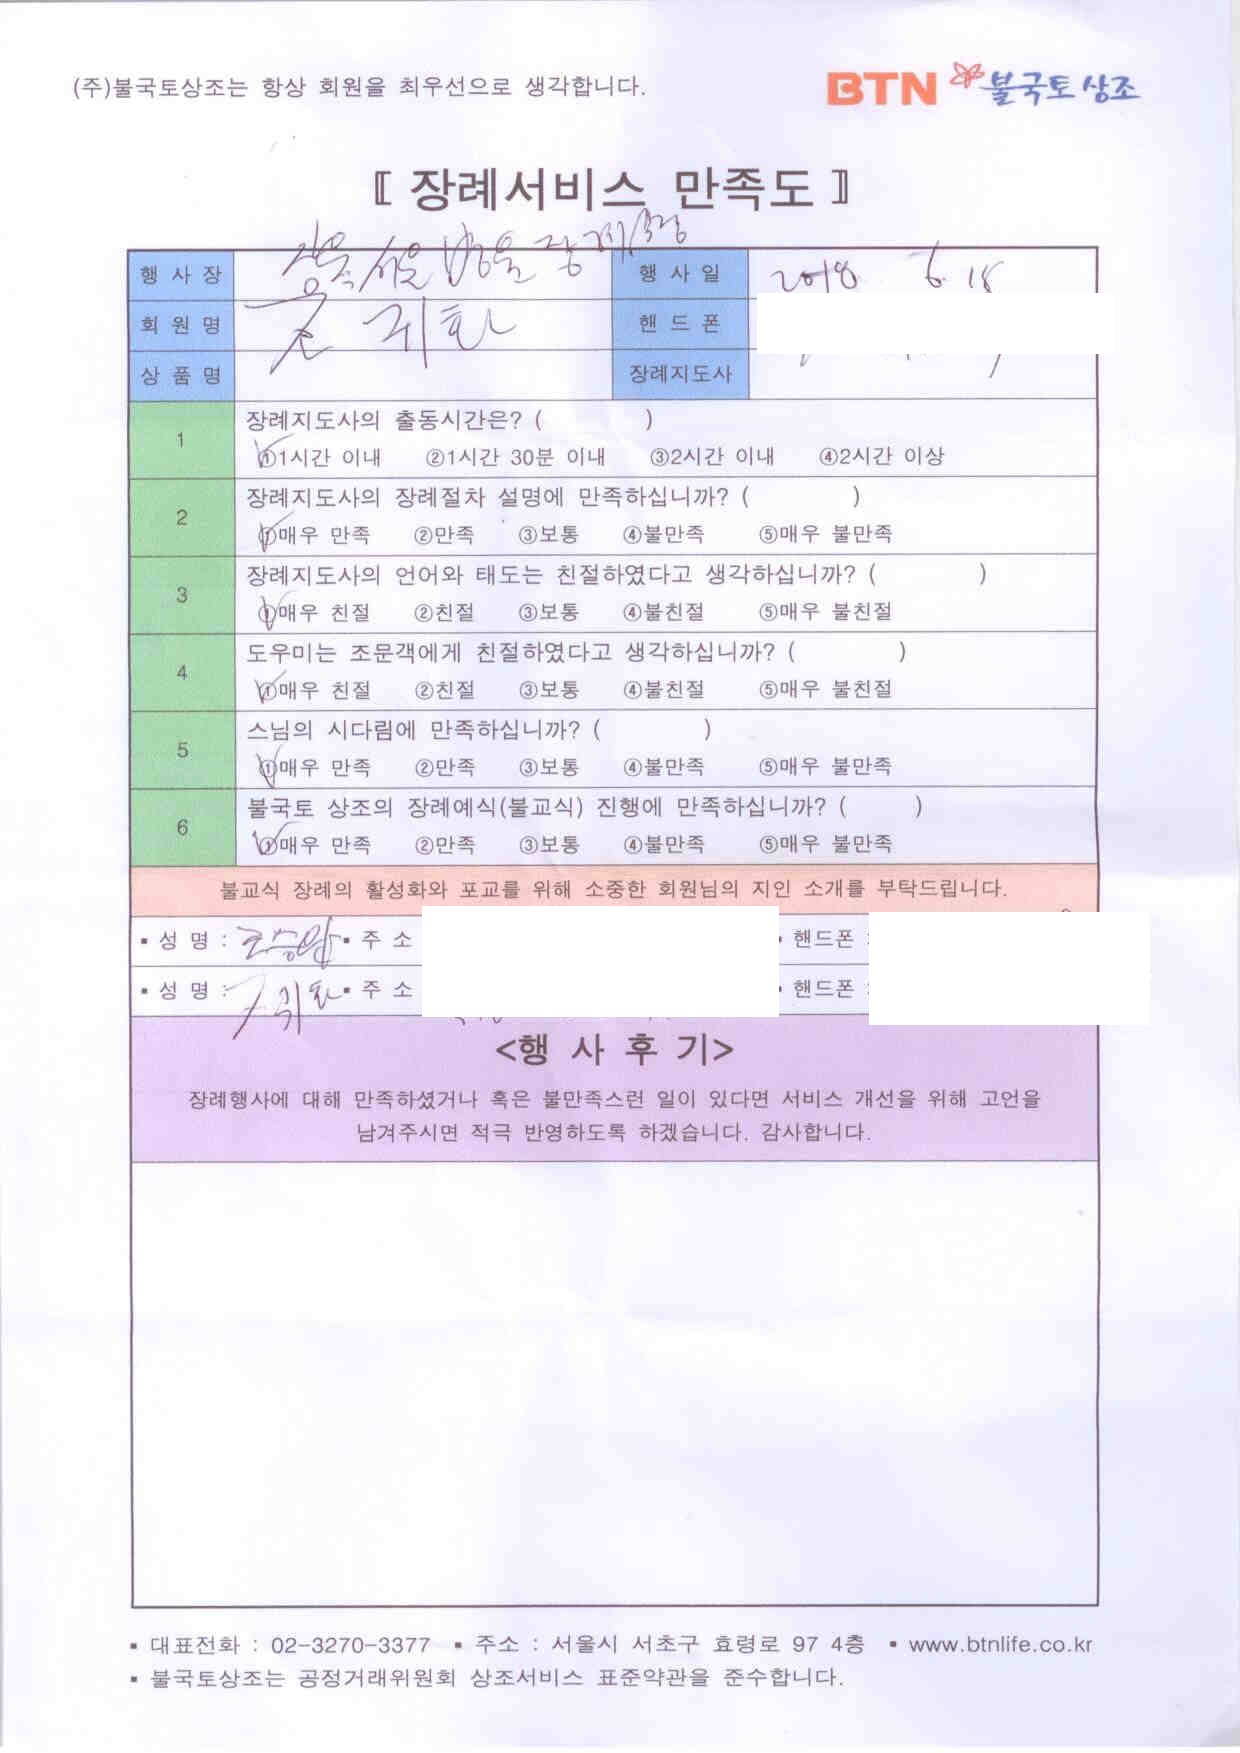 (주)불국토상조는 항상 회원을 최우선으로 생각합니다.
BTN 불국토상조
〖 장례서비스 만족도 〗
행 사 장
행 사 일 2018. 6. 18
회 원 명
핸 드 폰
상 품 명
장례지도사
1 장례지도사의 출동시간은? ( )
①1시간 이내 ②1시간 30분 이내 ③2시간 이내 ④2시간 이상
2 장례지도사의 장례절차 설명에 만족하십니까? ( )
①매우 만족 ②만족 ③보통 ④불만족 ⑤매우 불만족
3 장례지도사의 언어와 태도는 친절하였다고 생각하십니까? ( )
①매우 친절 ②친절 ③보통 ④불친절 ⑤매우 불친절
4 도우미는 조문객에게 친절하였다고 생각하십니까? ( )
①매우 친절 ②친절 ③보통 ④불친절 ⑤매우 불친절
5 스님의 시다림에 만족하십니까? ( )
①매우 만족 ②만족 ③보통 ④불만족 ⑤매우 불만족
6 불국토 상조의 장례예식(불교식) 진행에 만족하십니까? ( )
①매우 만족 ②만족 ③보통 ④불만족 ⑤매우 불만족
불교식 장례의 활성화와 포교를 위해 소중한 회원님의 지인 소개를 부탁드립니다.
▪ 성 명 : ▪ 주 소 ▪ 핸드폰 :
▪ 성 명 : ▪ 주 소 ▪ 핸드폰 :
<행 사 후 기>
장례행사에 대해 만족하셨거나 혹은 불만족스런 일이 있다면 서비스 개선을 위해 고언을
남겨주시면 적극 반영하도록 하겠습니다. 감사합니다.
▪ 대표전화 : 02-3270-3377 ▪ 주소 : 서울시 서초구 효령로 97 4층 ▪ www.btnlife.co.kr
▪ 불국토상조는 공정거래위원회 상조서비스 표준약관을 준수합니다.